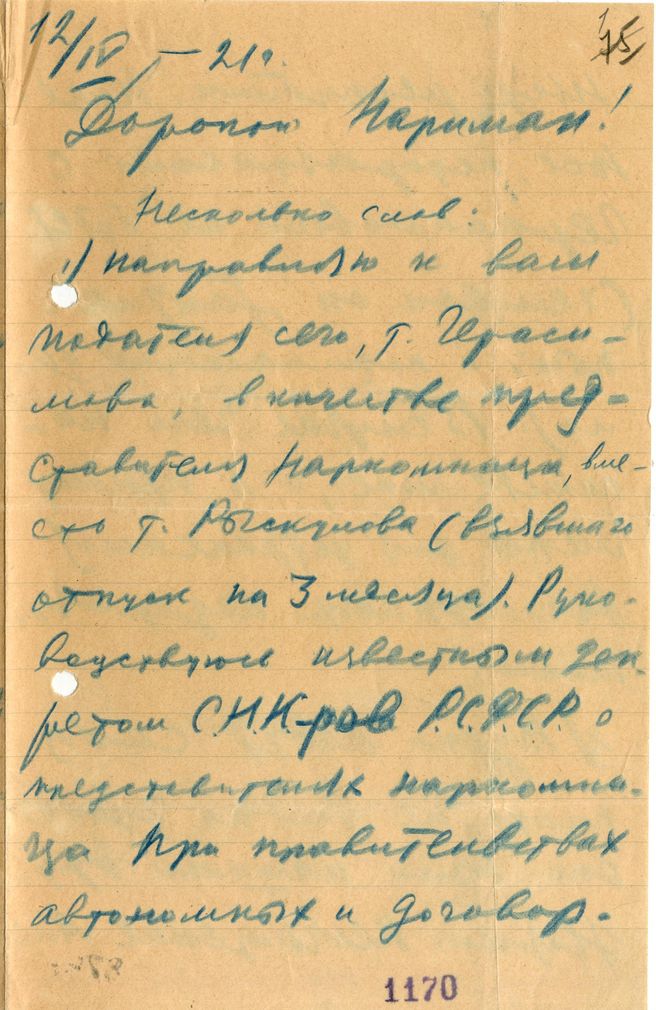 12/IV – 21 г.
75
Дорогой Нариман!
Несколько слов:
1) Направляю к вам
подателя сего, т. Гераси-
мова, в качестве пред-
ставителя Наркомнаца, вме-
сто т. Рыскулова (взявшаго
отпуск на 3 месяца). Руко-
водствуюсь известным дек-
ретом С.Н.К-ров Р.С.Ф.С.Р. о
представителях наркомна-
ца при правительствах
автономных и договор-
1170